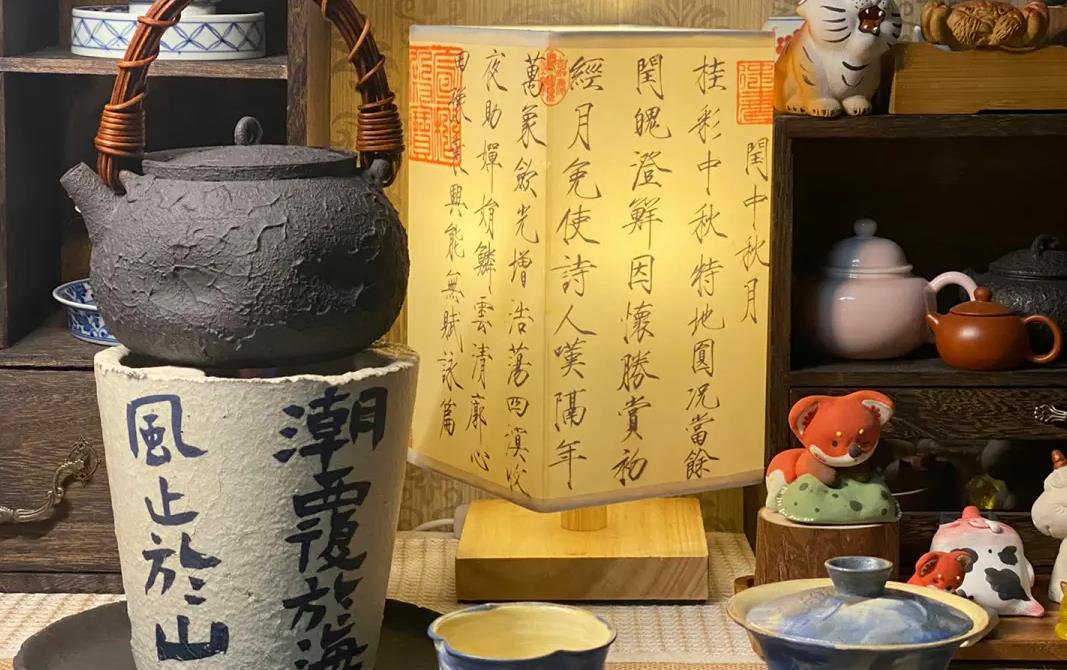 閏中秋月
桂彩中秋特地圓況當餘
閏魄澄鮮因懷勝賞初
經月免使詩人嘆隔年
萬象歛光增浩蕩四溟收
夜助嬋娟鱗雲清廓心
田豫乘興能無賦詠篇
潮覆於海
風止於山